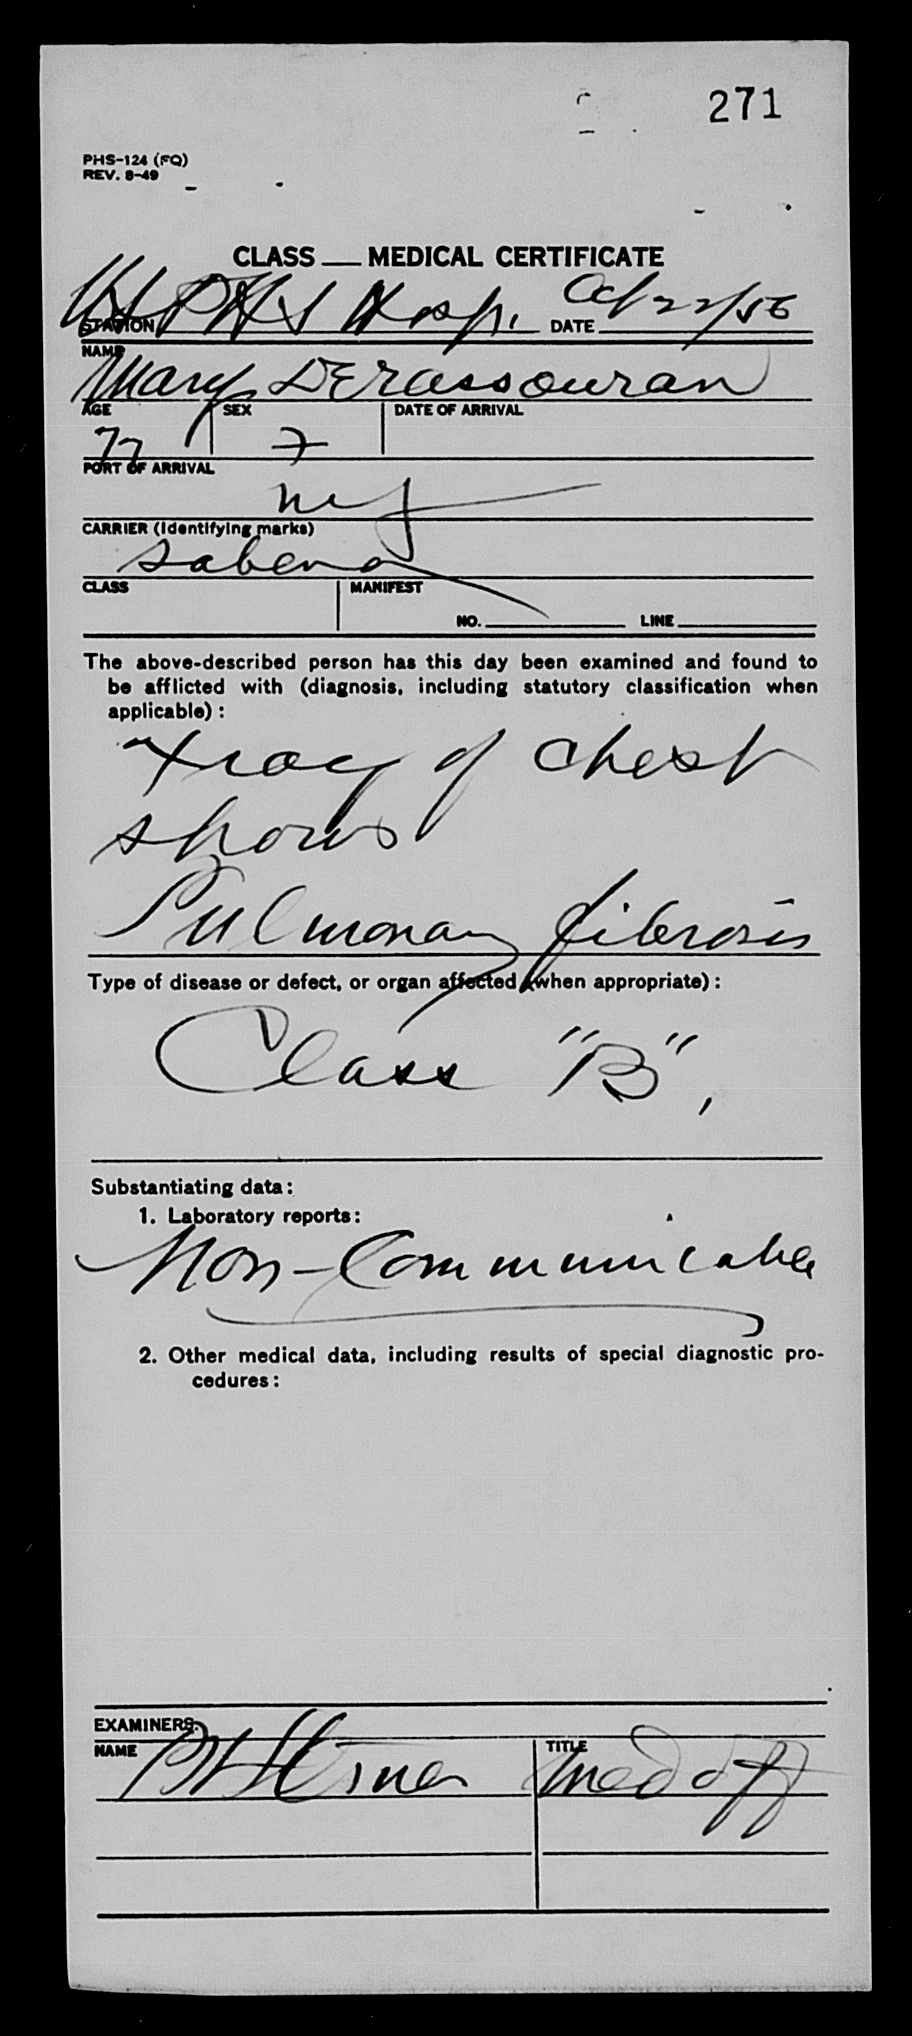 271
PHS-124 (FQ)
REV. 8-49
CLASS ___ MEDICAL CERTIFICATE
USPHS Hosp. Oct 22/56
STATION DATE
NAME
Mary DErassouran
AGE SEX DATE OF ARRIVAL
77 F
PORT OF ARRIVAL
NY
CARRIER (Identifying marks)
Sabena
CLASS MANIFEST
NO. ___ LINE ___
The above-described person has this day been examined and found to
be afflicted with (diagnosis, including statutory classification when
applicable):
Xray of chest
shows
Pulmonary fibrosis
Type of disease or defect, or organ affected (when appropriate):
Class "B",
Substantiating data:
1. Laboratory reports:
Non-Communicable
2. Other medical data, including results of special diagnostic pro-
cedures:
EXAMINERS:
NAME TITLE
Med off